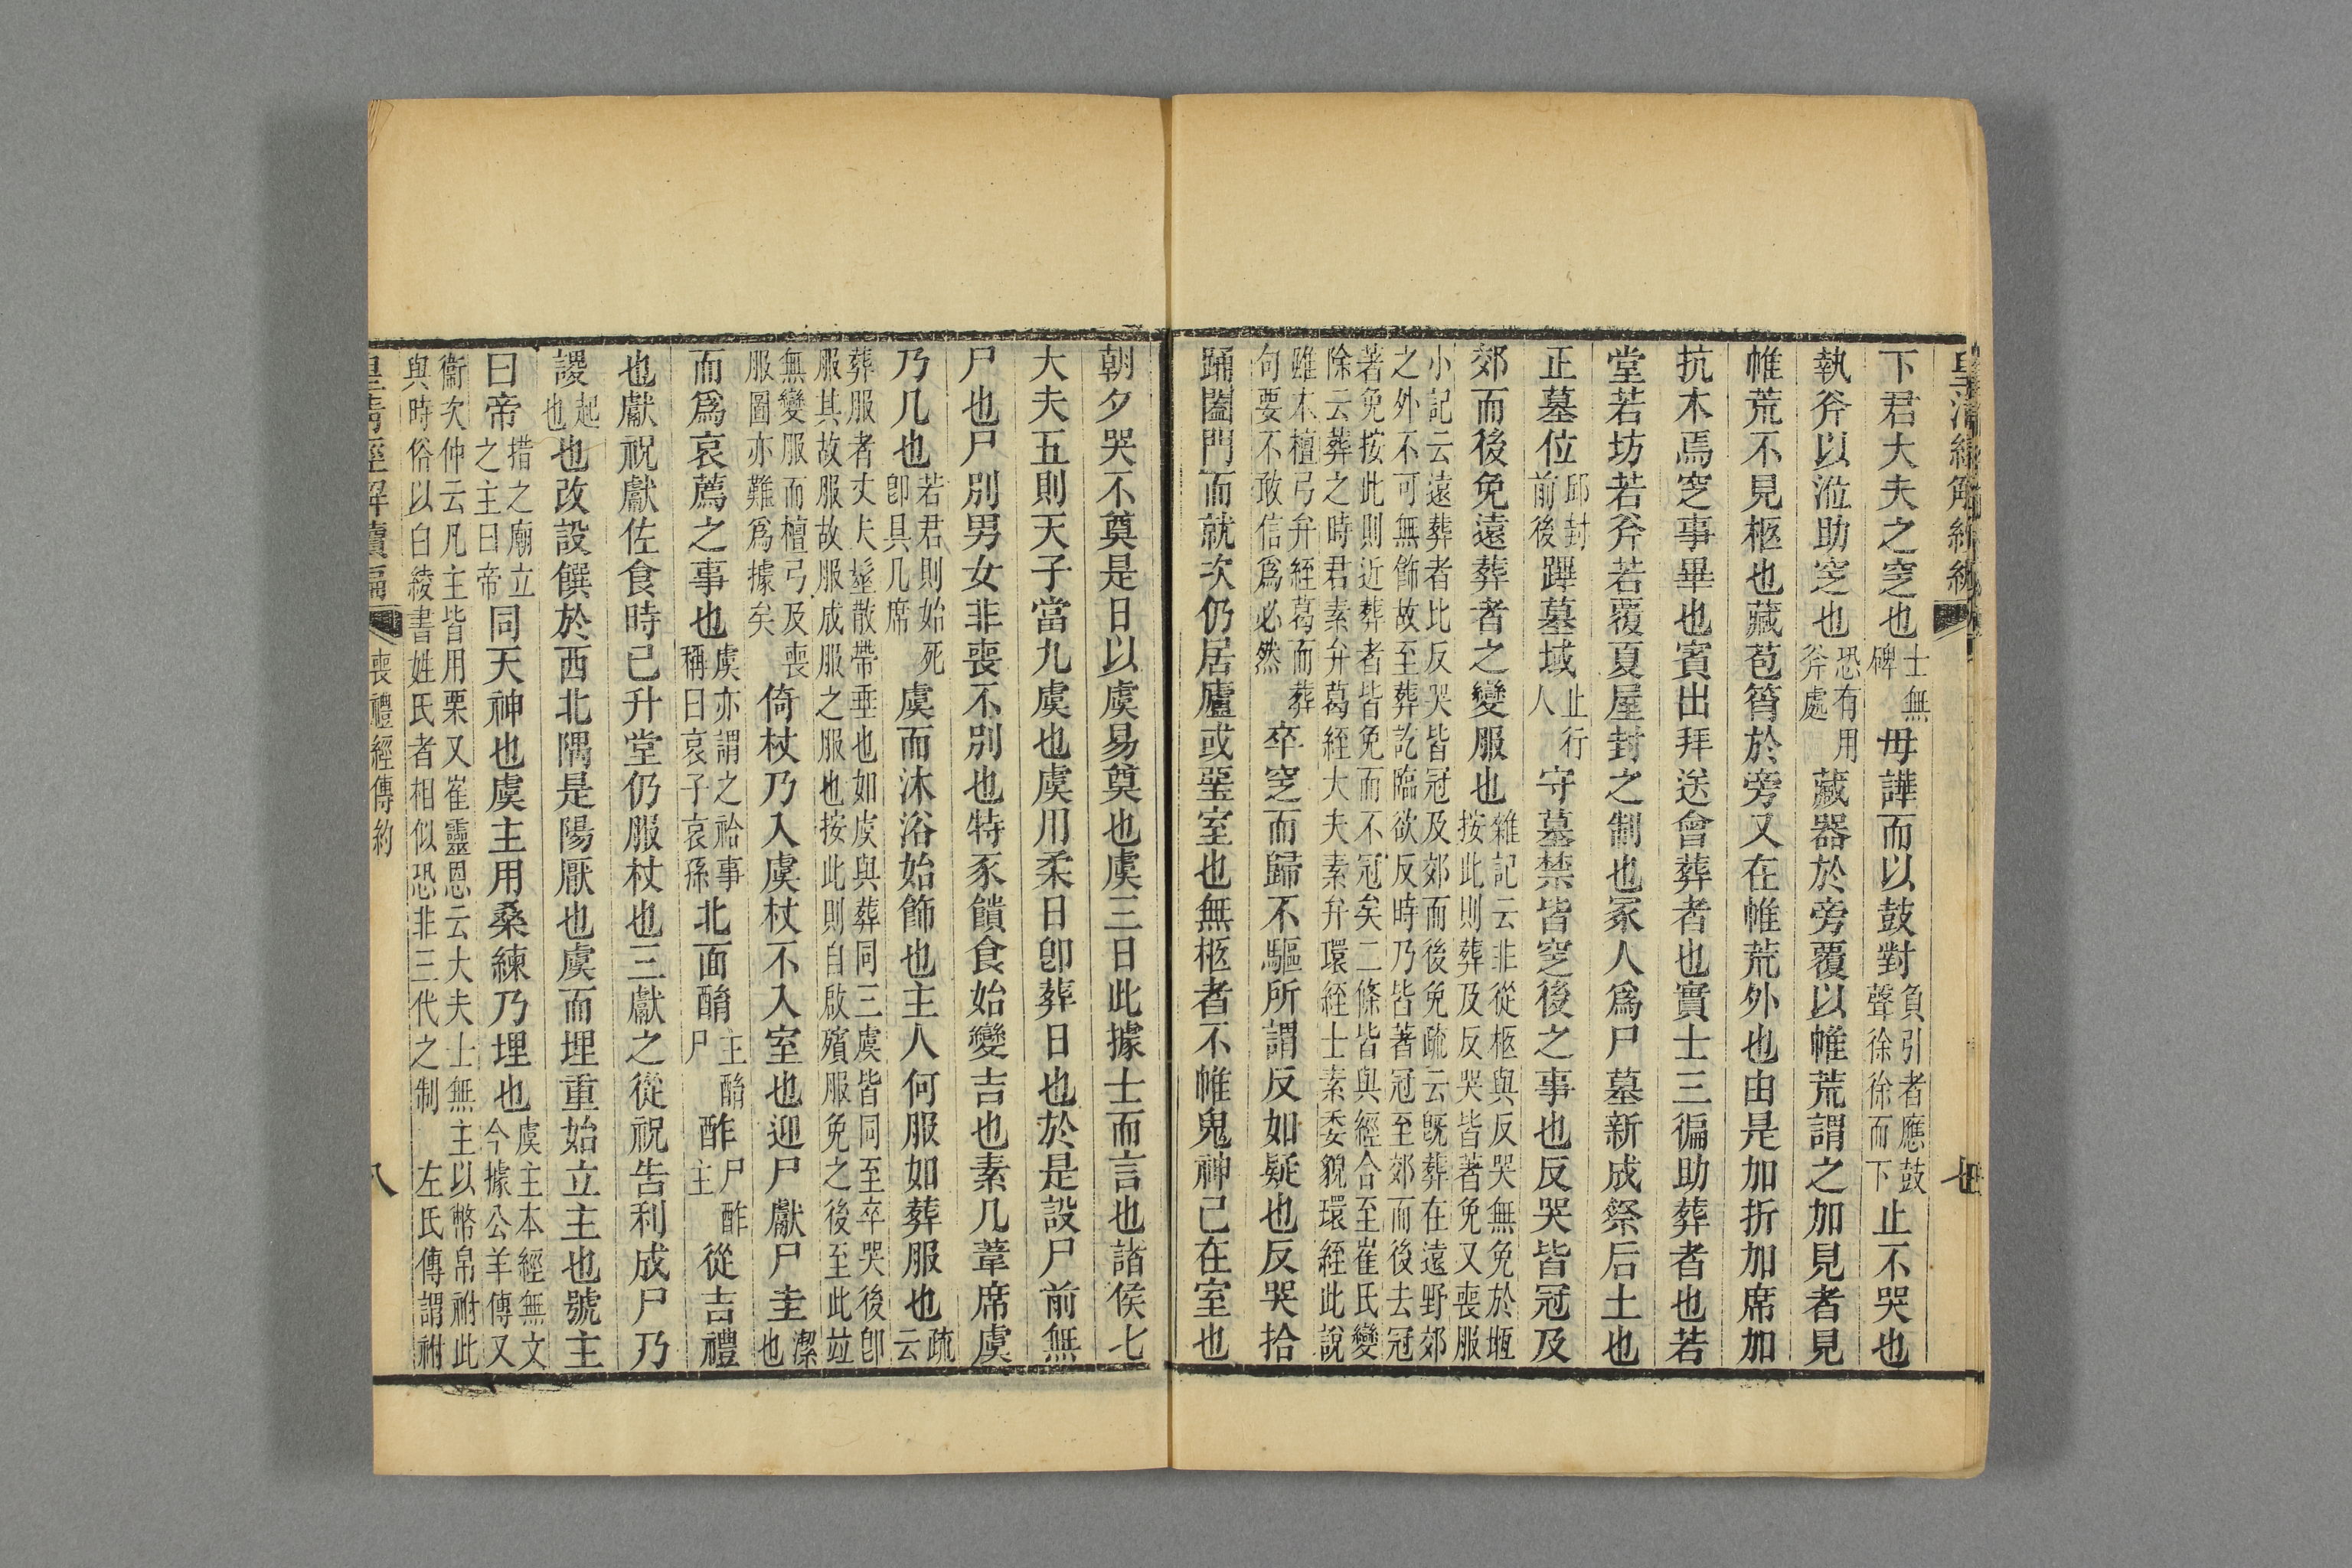 下君大夫之窆也士無碑毋譁而以鼓對負引者應鼓聲徐徐而下止不哭也
執斧以涖助窆也恐有用斧處藏器於旁覆以帷荒謂之加見者見
帷荒不見柩也藏苞筲於旁又在帷荒外也由是加折加席加
抗木焉窆事畢也賓出拜送會葬者也實土三徧助葬者也若
堂若坊若斧若覆夏屋封之制也冢人爲尸墓新成祭后土也
正墓位邱封前後蹕墓域止行人守墓禁皆窆後之事也反哭皆冠及
郊而後免遠葬者之變服也雜記云非從柩與反哭無免於堩按此則葬及反哭皆著免又喪服
小記云遠葬者比反哭皆冠及郊而後免疏云旣葬在遠野郊
之外不可無飾故至葬訖臨欲反時乃皆著冠至郊而後去冠
著免按此則近葬者皆免而不冠矣二條皆與經合至崔氏變
除云葬之時君素弁葛絰大夫素弁環絰士素委貌環絰此說
雖本檀弓弁絰葛而葬句要不敢信爲必然卒窆而歸不驅所謂反如疑也反哭拾
踊闔門而就次仍居廬或堊室也無柩者不帷鬼神已在室也
朝夕哭不奠是日以虞易奠也虞三日此據士而言也諸侯七
大夫五則天子當九虞也虞用柔日卽葬日也於是設尸前無
尸也尸別男女非喪不別也特豕饋食始變吉也素几葦席虞
乃几也若君則始死卽具几席虞而沐浴始飾也主人何服如葬服也疏云
葬服者丈夫髽散帶垂也如虞與葬同三虞皆同至卒哭後卽
服其故服故服成服之服也按此則自啟殯服免之後至此竝
無變服而檀弓及喪服圖亦難爲據矣倚杖乃入虞杖不入室也迎尸獻尸圭潔也
而爲哀薦之事也虞亦謂之祫事稱曰哀子哀孫北面酳主酳尸酢尸酢主從吉禮
也獻祝獻佐食時已升堂仍服杖也三獻之從祝告利成尸乃
謖起也也改設饌於西北隅是陽厭也虞而埋重始立主也號主
曰帝措之廟立之主曰帝同天神也虞主用桑練乃埋也虞主本經無文今據公羊傳又
衞次仲云凡主皆用栗又崔靈恩云大夫士無主以幣帛祔此
與時俗以白綾書姓氏者相似恐非三代之制　左氏傳謂祔
喪禮經傳約
八